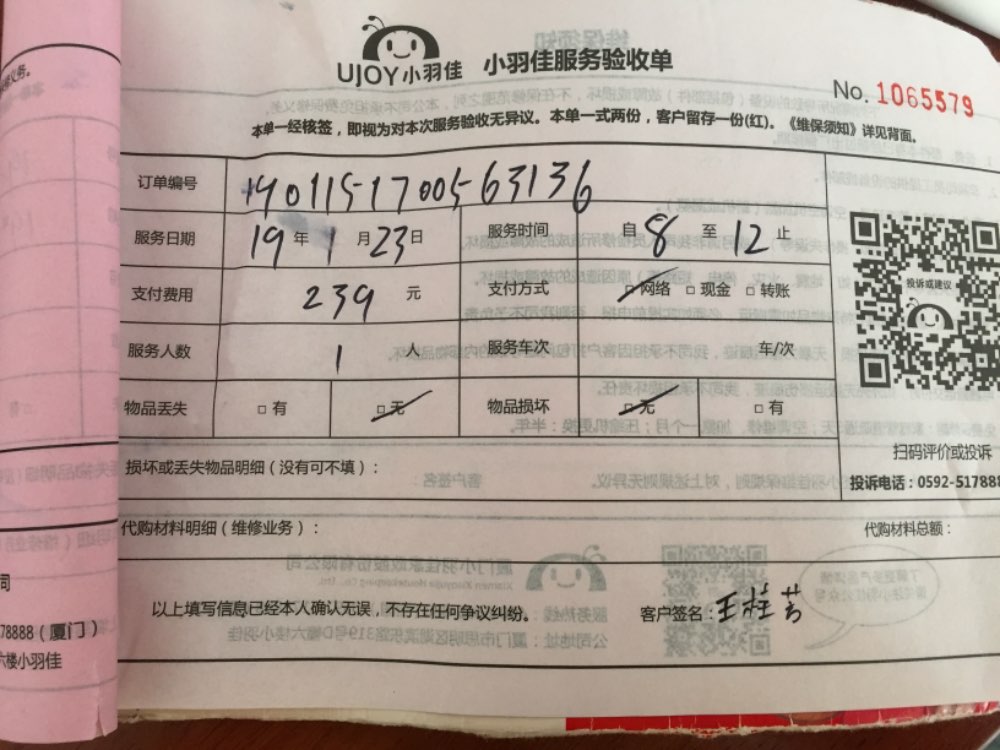 UJOY小羽佳 小羽佳服务验收单
No. 1065579
本单一经核签，即视为对本次服务验收无异议。本单一式两份，客户留存一份(红)。《维保须知》详见背面。
订单编号 190115170056 3136
服务日期 19年1月23日 服务时间 自8至12止
支付费用 239元 支付方式 □网络 □现金 □转账
投诉或建议
服务人数 1人 服务车次 车/次
物品丢失 □有 □无 物品损坏 □无 □有
扫码评价或投诉
损坏或丢失物品明细（没有可不填）：
投诉电话：0592-517888
代购材料明细（维修业务）： 代购材料总额：
以上填写信息已经本人确认无误，不存在任何争议纠纷。 客户签名：王桂芳
78888（厦门）
六楼小羽佳